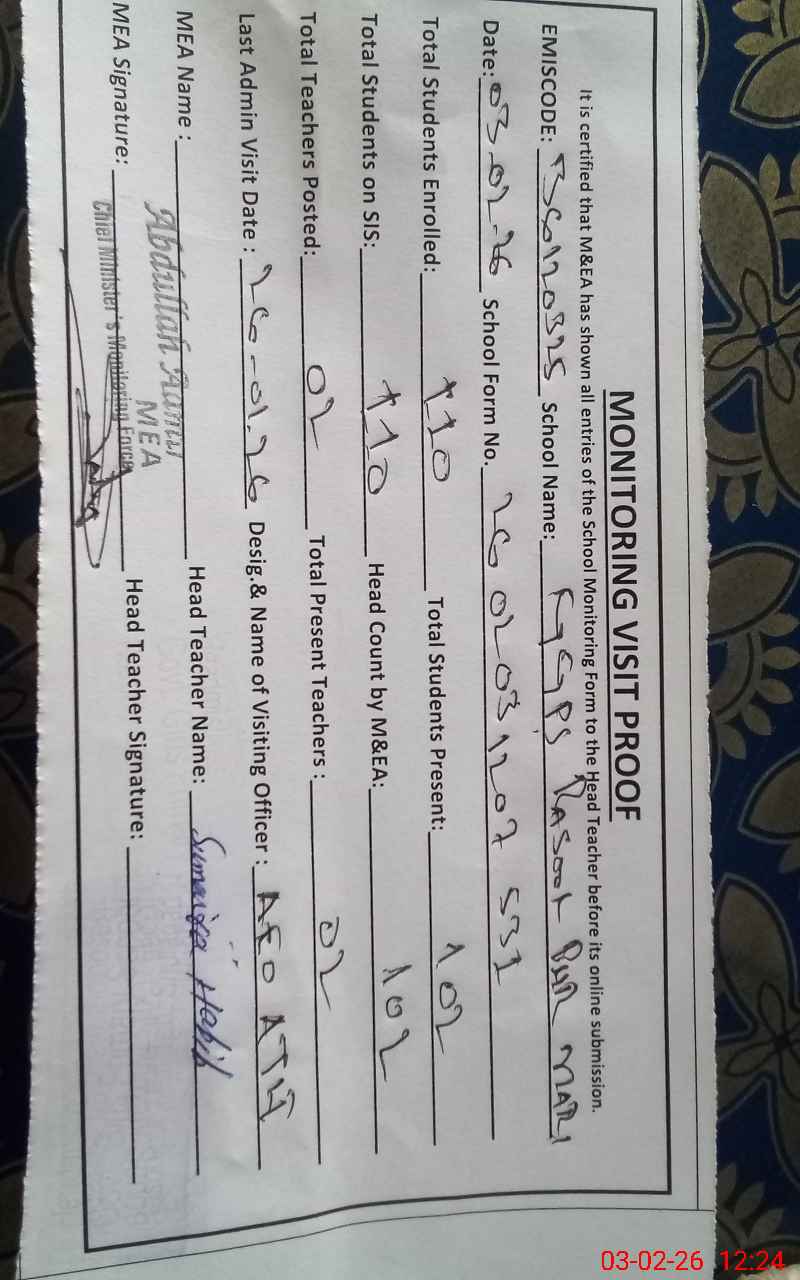 MONITORING VISIT PROOF
It is certified that M&EA has shown all entries of the School Monitoring Form to the Head Teacher before its online submission.
EMISCODE: School Name: GPS RASOOL PUR MARI
Date: 03-02-26 School Form No. 26 0203 1207 531
Total Students Enrolled: 110 Total Students Present: 102
Total Students on SIS: 110 Head Count by M&EA: 102
Total Teachers Posted: 02 Total Present Teachers : 02
Last Admin Visit Date : 26-01-26 Desig.& Name of Visiting Officer : AEO
MEA Name : Abdullah Head Teacher Name: Sumaiya Habib
MEA
MEA Signature: Chief Minister's Monitoring Force Head Teacher Signature:
03-02-26 12:24